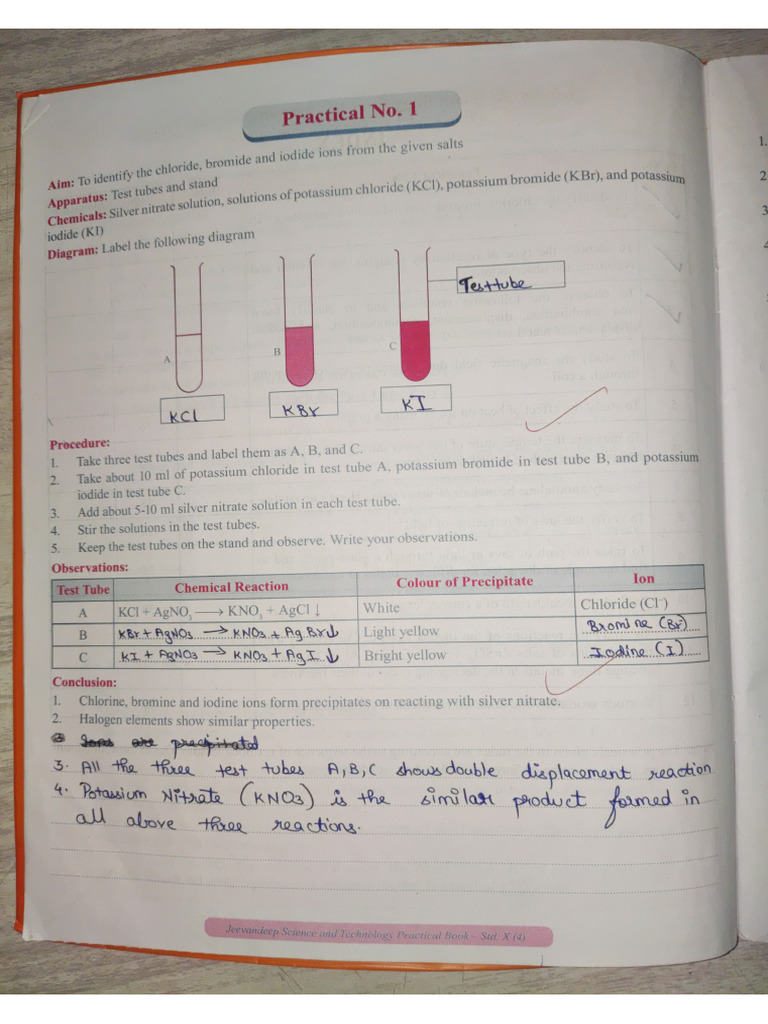 Practical No. 1
Aim: To identify the chloride, bromide and iodide ions from the given salts
Apparatus: Test tubes and stand
Chemicals: Silver nitrate solution, solutions of potassium chloride (KCl), potassium bromide (KBr), and potassium
iodide (KI)
Diagram: Label the following diagram
Testtube
A
B
C
KCl
KBr
KI
Procedure:
1. Take three test tubes and label them as A, B, and C.
2. Take about 10 ml of potassium chloride in test tube A, potassium bromide in test tube B, and potassium
iodide in test tube C.
3. Add about 5-10 ml silver nitrate solution in each test tube.
4. Stir the solutions in the test tubes.
5. Keep the test tubes on the stand and observe. Write your observations.
Observations:
Test Tube Chemical Reaction Colour of Precipitate Ion
A KCl + AgNO₃ ⟶ KNO₃ + AgCl ↓ White Chloride (Cl⁻)
B KBr + AgNO₃ → KNO₃ + AgBr↓ Light yellow Bromine (Br⁻)
C KI + AgNO₃ → KNO₃ + AgI ↓ Bright yellow Iodine (I⁻)
Conclusion:
1. Chlorine, bromine and iodine ions form precipitates on reacting with silver nitrate.
2. Halogen elements show similar properties.
3 Ions are precipitated
3. All the three test tubes A, B, C shows double displacement reaction
4. Potassium Nitrate (KNO₃) is the similar product formed in
all above three reactions.
Jeevandeep Science and Technology Practical Book – Std. X (4)
1.
2
3